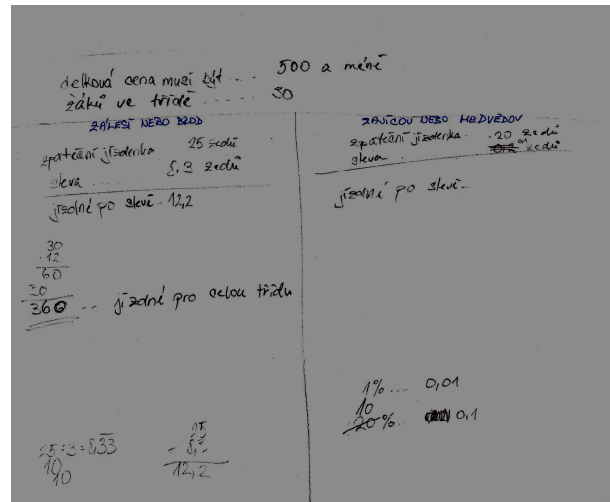 celková cena musí být .... 500 a méně
žáků ve třídě ...... 30
ZÁLESÍ NEBO BROD
zpáteční jízdenka 25 zedů
sleva ...... 8,3 zedů
jízdné po slevě.. 12,2
30
.12
60
30
360 -- jízdné pro celou třídu
25:3=8,33
10
10
- 8,3
12,2
ZAJÍCOV NEBO MEDVĚDOV
zpáteční jízdenka .20 zedů
sleva . zedů
jízdné po slevě..
1% .... 0,01
10
20%.. 0,1